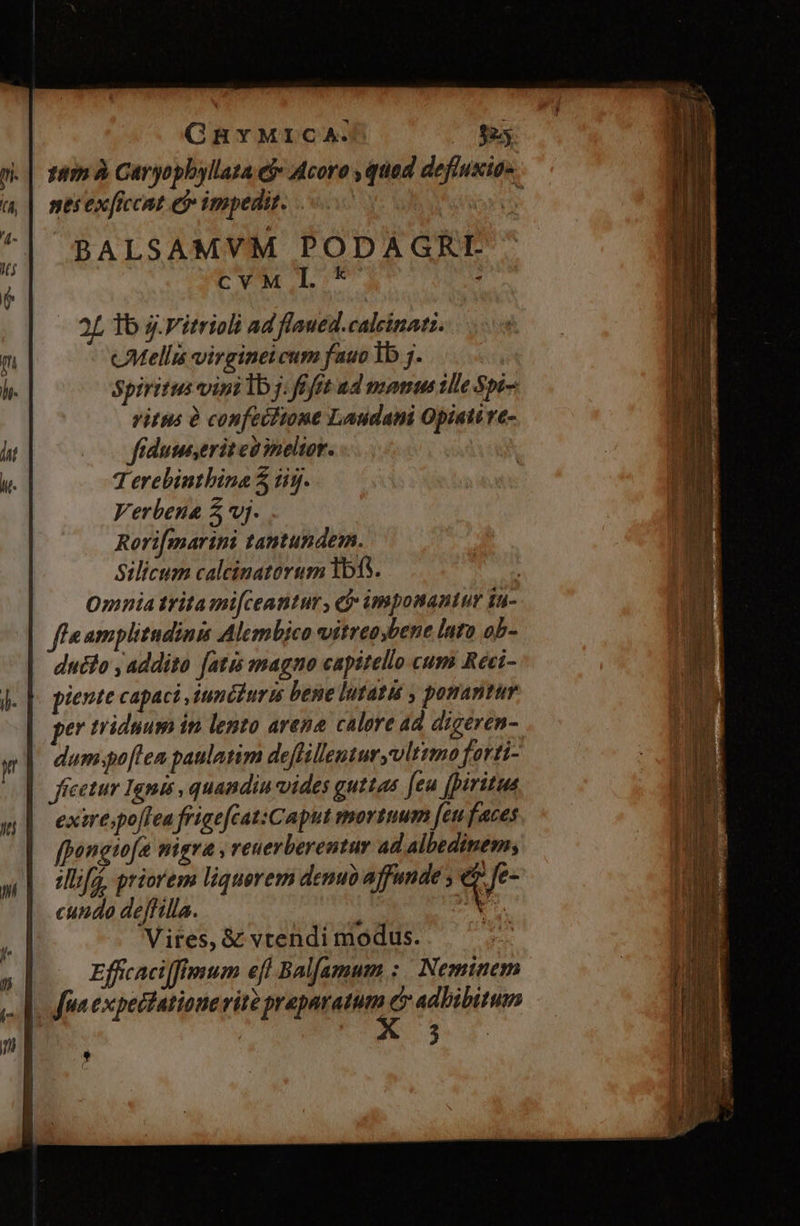 CHYMICA. 325
tum à Caryophyllata & Acoro, quod defluxio-
nes exſiccat & impedit.
BALSAMVM PODAGRI-
CVM I. *
♃ ℔ ij. Vitrioli ad flaued. calcinati.
Mellis virginei cum fauo ℔ j.
Spiritus vini ℔ j. ſi ſit ad manus ille Spi-
ritus è confectione Laudani Opiati re-
ſiduus, erit eò melior.
Terebinthinæ ℥ iiij.
Verbenæ ℥ vj.
Roriſmarini tantundem.
Silicum calcinatorum ℔ ß.
Omnia trita miſceantur, & imponantur iu-
ſtæ amplitudinis Alembico vitreo, bene luto ob-
ducto, addito ſatis magno capitello cum Reci-
piente capaci, iuncturis bene lutatis, ponantur
per triduum in lento arenæ calore ad digeren-
dum, poſtea paulatim deſtillentur, vltimo forti-
ficetur Ignis, quandiu vides guttas ſeu ſpiritus
exire, poſtea frigeſcat: Caput mortuum ſeu fæces
ſpongioſæ nigræ, reuerberentur ad albedinem,
illiſq́; priorem liquorem denuò affunde, & ſe-
cundo deſtilla.
Vires, & vtendi modus.
Efficaciſſimum eſt Balſamum: Neminem
ſua expectatione ritè præparatum & adhibitum
X 3